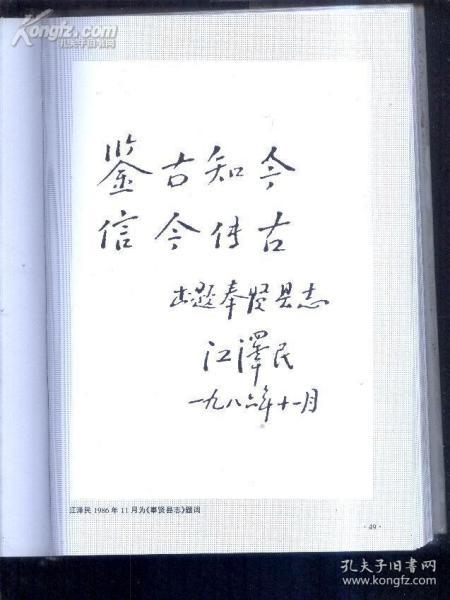 Kongfz.com
孔夫子旧书网
鉴古知今
信今传古
出题奉贤县志
江泽民
一九八六年十一月
江泽民 1986 年 11 月为《奉贤县志》题词
·49·
孔夫子旧书网
www.kongfz.com